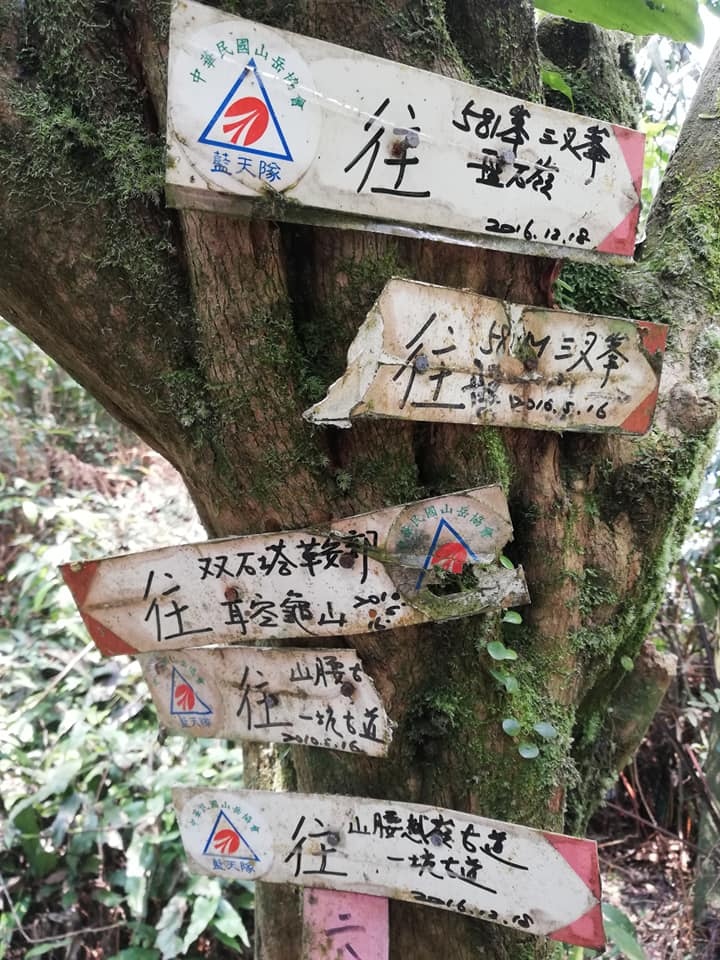 中華民國山岳協會
藍天隊
往
581峯 三叉峯
盤石嶺
2016.12.18
往
581M 三叉峯
2016.5.16
双石塔鞍部
往
耳空龜山
2016
5
16
中華民國山岳協會
山腰古
往
一坑古道
2010.5.16
藍天隊
中華民國山岳協會
藍天隊
往
山腰越嶺古道
一坑古道
2016.12.18